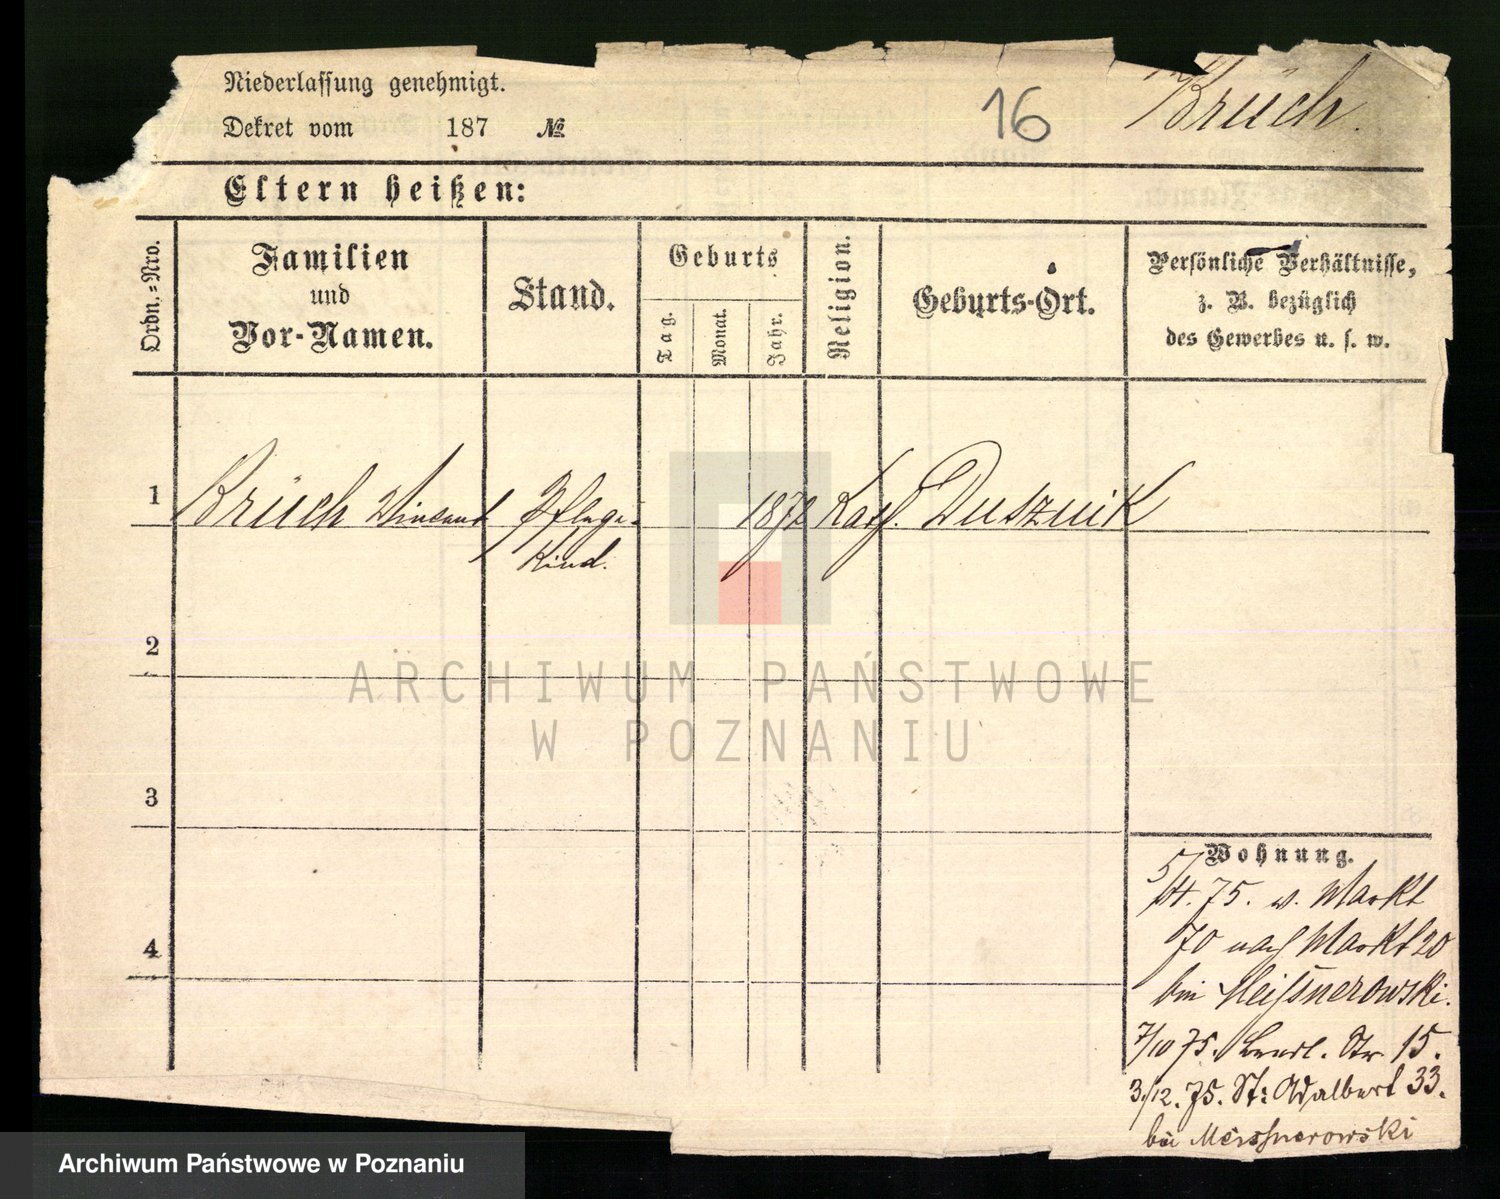 Niederlassung genehmigt.
16
Brüch.
Dekret vom 187 №
Eltern heißen:
Ordn.=Nro.
Familien
und
Vor-Namen.
Stand.
Geburts
Tag.
Monat.
Jahr.
Religion.
Geburts-Ort.
Persönliche Verhältnisse,
z. B. bezüglich
des Gewerbes u. s. w.
1 Brüch Vincent Pflege- 1872 Kath. Dusznik
Kind.
2
ARCHIWUM PAŃSTWOWE
W POZNANIU
3
Wohnung.
5/4. 75. v. Markt
70 nach Markt 20
bei Meißnerowski.
7/10 75. Str. 15.
4
3/12. 75. St: Adalbert 33.
bei Meissnerowski
Archiwum Państwowe w Poznaniu